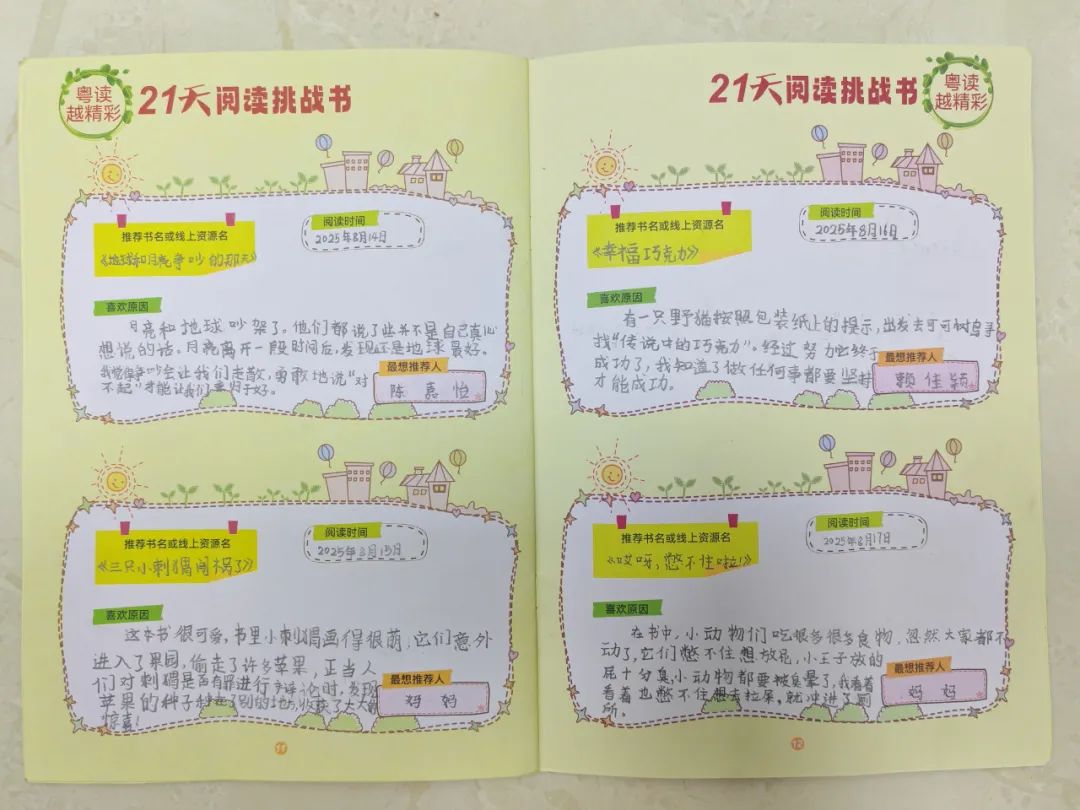 粤读
越精彩
21天阅读挑战书
推荐书名或线上资源名
《地球和月亮争吵的那天》
阅读时间
2025年8月14日
喜欢原因
月亮和地球吵架了。他们都说了些并不是自己真心
想说的话。月亮离开一段时间后,发现还是地球最好。
我觉得争吵会让我们走散,勇敢地说“对
不起”才能让我们重归于好。
最想推荐人
陈嘉怡
推荐书名或线上资源名
《三只小刺猬闯祸了》
阅读时间
2025年8月15日
喜欢原因
这本书很可爱,书里小刺猬画得很萌,它们意外
进入了果园,偷走了许多苹果,正当人
们对刺猬是否有罪进行辩论时,发现
苹果的种子种在了别的地方,收获了大大的
惊喜!
最想推荐人
妈妈
11
21天阅读挑战书
粤读
越精彩
推荐书名或线上资源名
《幸福巧克力》
阅读时间
2025年8月16日
喜欢原因
有一只野猫按照包装纸上的提示,出发去可可树岛寻
找“传说中的巧克力”。经过努力它终于
成功了,我知道了做任何事都要坚持
才能成功。
最想推荐人
赖佳颖
推荐书名或线上资源名
《哎呀,憋不住啦!》
阅读时间
2025年8月17日
喜欢原因
在书中,小动物们吃很多很多食物,忽然大家都不
动了,它们憋不住想放屁,小王子放的
屁十分臭,小动物都要被臭晕了,我看着
看着也憋不住想去拉屎,就冲进了厕
所。
最想推荐人
妈妈
12